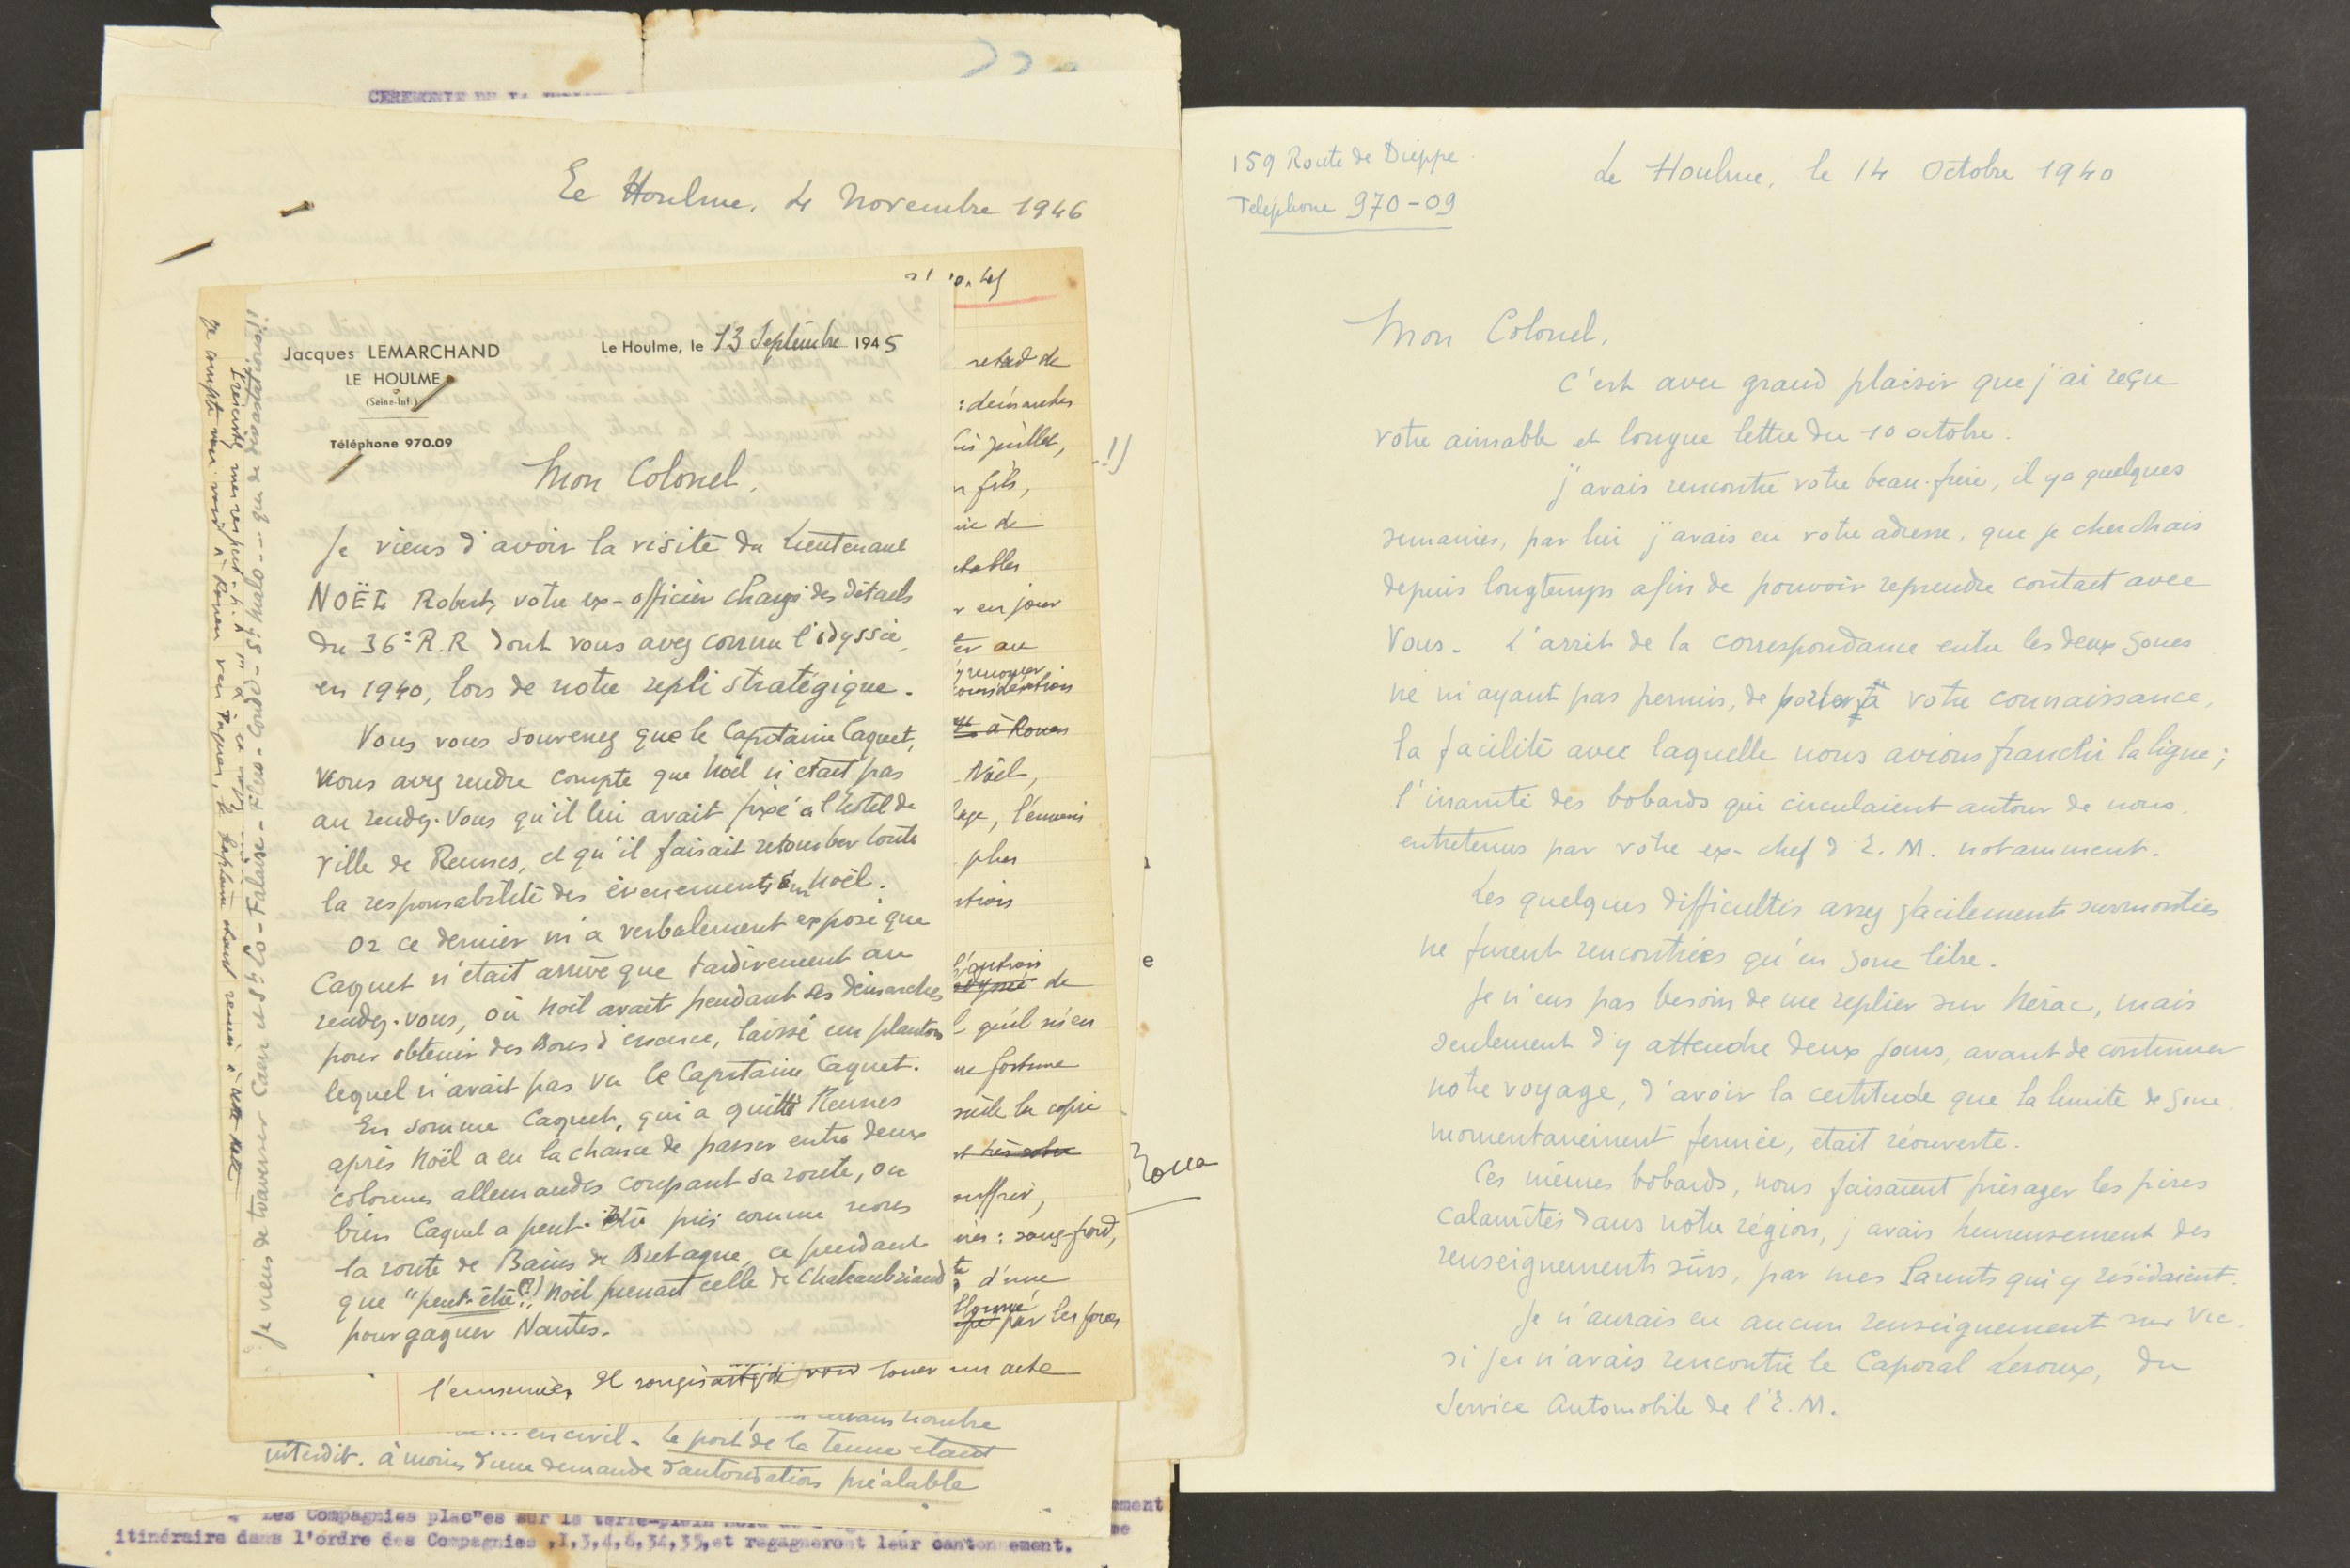 CEREMONIE DU
Le Houlme, 4 Novembre 1946
Jacques LEMARCHAND
LE HOULME
(Seine-Inf.)
Téléphone 970.09
Le Houlme, le 13 Septembre 1945
Mon Colonel,
Je viens d'avoir la visite du Lieutenant
NOËL Robert, votre ex-officier chargé des détails
du 36e R.R dont vous avez connu l'odyssée,
en 1940, lors de notre repli stratégique.
Vous vous souvenez que le Capitaine Caquet,
vous avez rendre compte que Noël n'était pas
au rendez-vous qu'il lui avait fixé à l'hôtel de
ville de Rennes, et qu'il faisait retomber toute
la responsabilité des évenements sur Noël.
Or ce dernier m'a verbalement exposé que
Caquet n'était arrivé que tardivement au
rendez-vous, où Noël avait pendant ses démarches
pour obtenir des Bons d'essence, laissé un planton
lequel n'avait pas vu le Capitaine Caquet.
En somme Caquet, qui a quitté Rennes
après Noël a eu la chance de passer entre deux
colonnes allemandes coupant sa route, ou
bien Caquet a peut-être pris comme nous
la route de Bains de Bretagne, ce pendant
que "peut-être(?)" Noël prenait celle de Chateaubriand
pour gagner Nantes.
Je viens de traverser Caen et St Lô - Falaise - Flers - Condé - St Malo --- que de dévastations!!
retard de
démarches
juillet,
fils,
de
en jour
au
renoyer
considération
à Rouen
Noël,
l'ennemi
plus
de
qu'il m'en
fortune
suite la copie
souffrir,
sang-froid,
d'une
par les forces
l'ennemi. Il louer un acte
en civil - le port de la tenue étant
interdit. à moins d'une demande d'autorisation préalable
Les Compagnies plac"es sur le terre-plein
itinéraire dans l'ordre des Compagnies ,I,3,4,6,34,35,et regagneront leur cantonnement.
159 Route de Dieppe
Téléphone 970-09
Le Houlme, le 14 Octobre 1940
Mon Colonel,
C'est avec grand plaisir que j'ai reçu
votre aimable et longue lettre du 10 octobre.
j'avais rencontré votre beau-frère, il y a quelques
semaines, par lui j'avais eu votre adresse, que je cherchais
depuis longtemps afin de pouvoir reprendre contact avec
Vous. L'arrêt de la correspondance entre les deux zones
ne m'ayant pas permis, de porter à votre connaissance,
la facilité avec laquelle nous avions franchi la ligne;
l'inanité des bobards qui circulaient autour de nous.
entretenus par votre ex-chef d'E.M. notamment.
Les quelques difficultés assez facilement surmontées
ne furent rencontrées qu'en zone libre.
Je n'eus pas besoin de me replier sur Nérac, mais
seulement d'y attendre deux jours, avant de continuer
notre voyage, d'avoir la certitude que la limite de zone
momentanément fermée, était réouverte.
Ces mêmes bobards, nous faisaient présager les pires
calamités dans notre région, j'avais heureusement des
renseignements sûrs, par mes Parents qui y résidaient.
Je n'aurais eu aucun renseignement sur Vic.
si je n'avais rencontré le Caporal Leroux, du
Service Automobile de l'E.M.